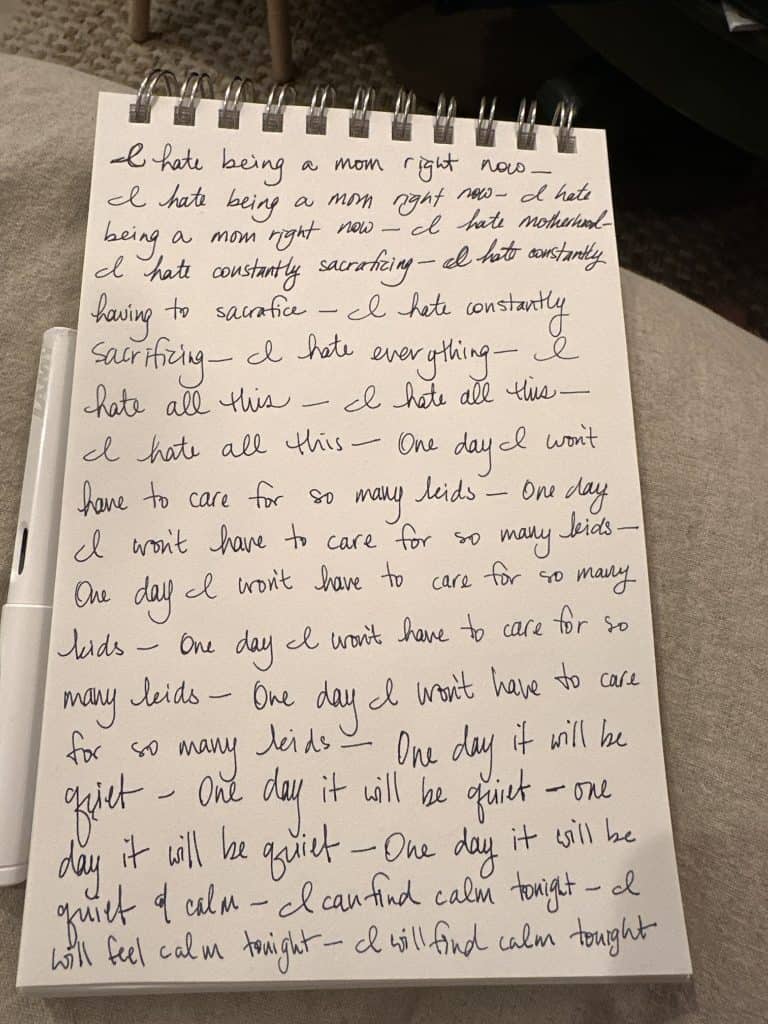 I hate being a mom right now —
I hate being a mom right now — I hate
being a mom right now — I hate motherhood —
I hate constantly sacraficing — I hate constantly
having to sacrafice — I hate constantly
sacrificing — I hate everything — I
hate all this — I hate all this —
I hate all this — One day I won't
have to care for so many kids — One day
I won't have to care for so many kids —
One day I won't have to care for so many
kids — One day I won't have to care for so
many kids — One day I won't have to care
for so many kids — One day it will be
quiet — One day it will be quiet — one
day it will be quiet — One day it will be
quiet & calm — I can find calm tonight — I
will feel calm tonight — I will find calm tonight